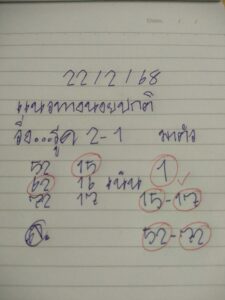 22/2/68
แนวทางหวยปกติ
วิ่ง...รูด 2-1 มาตัว
52 15 1
62 16 เน้น
72 17 15-17
52-72